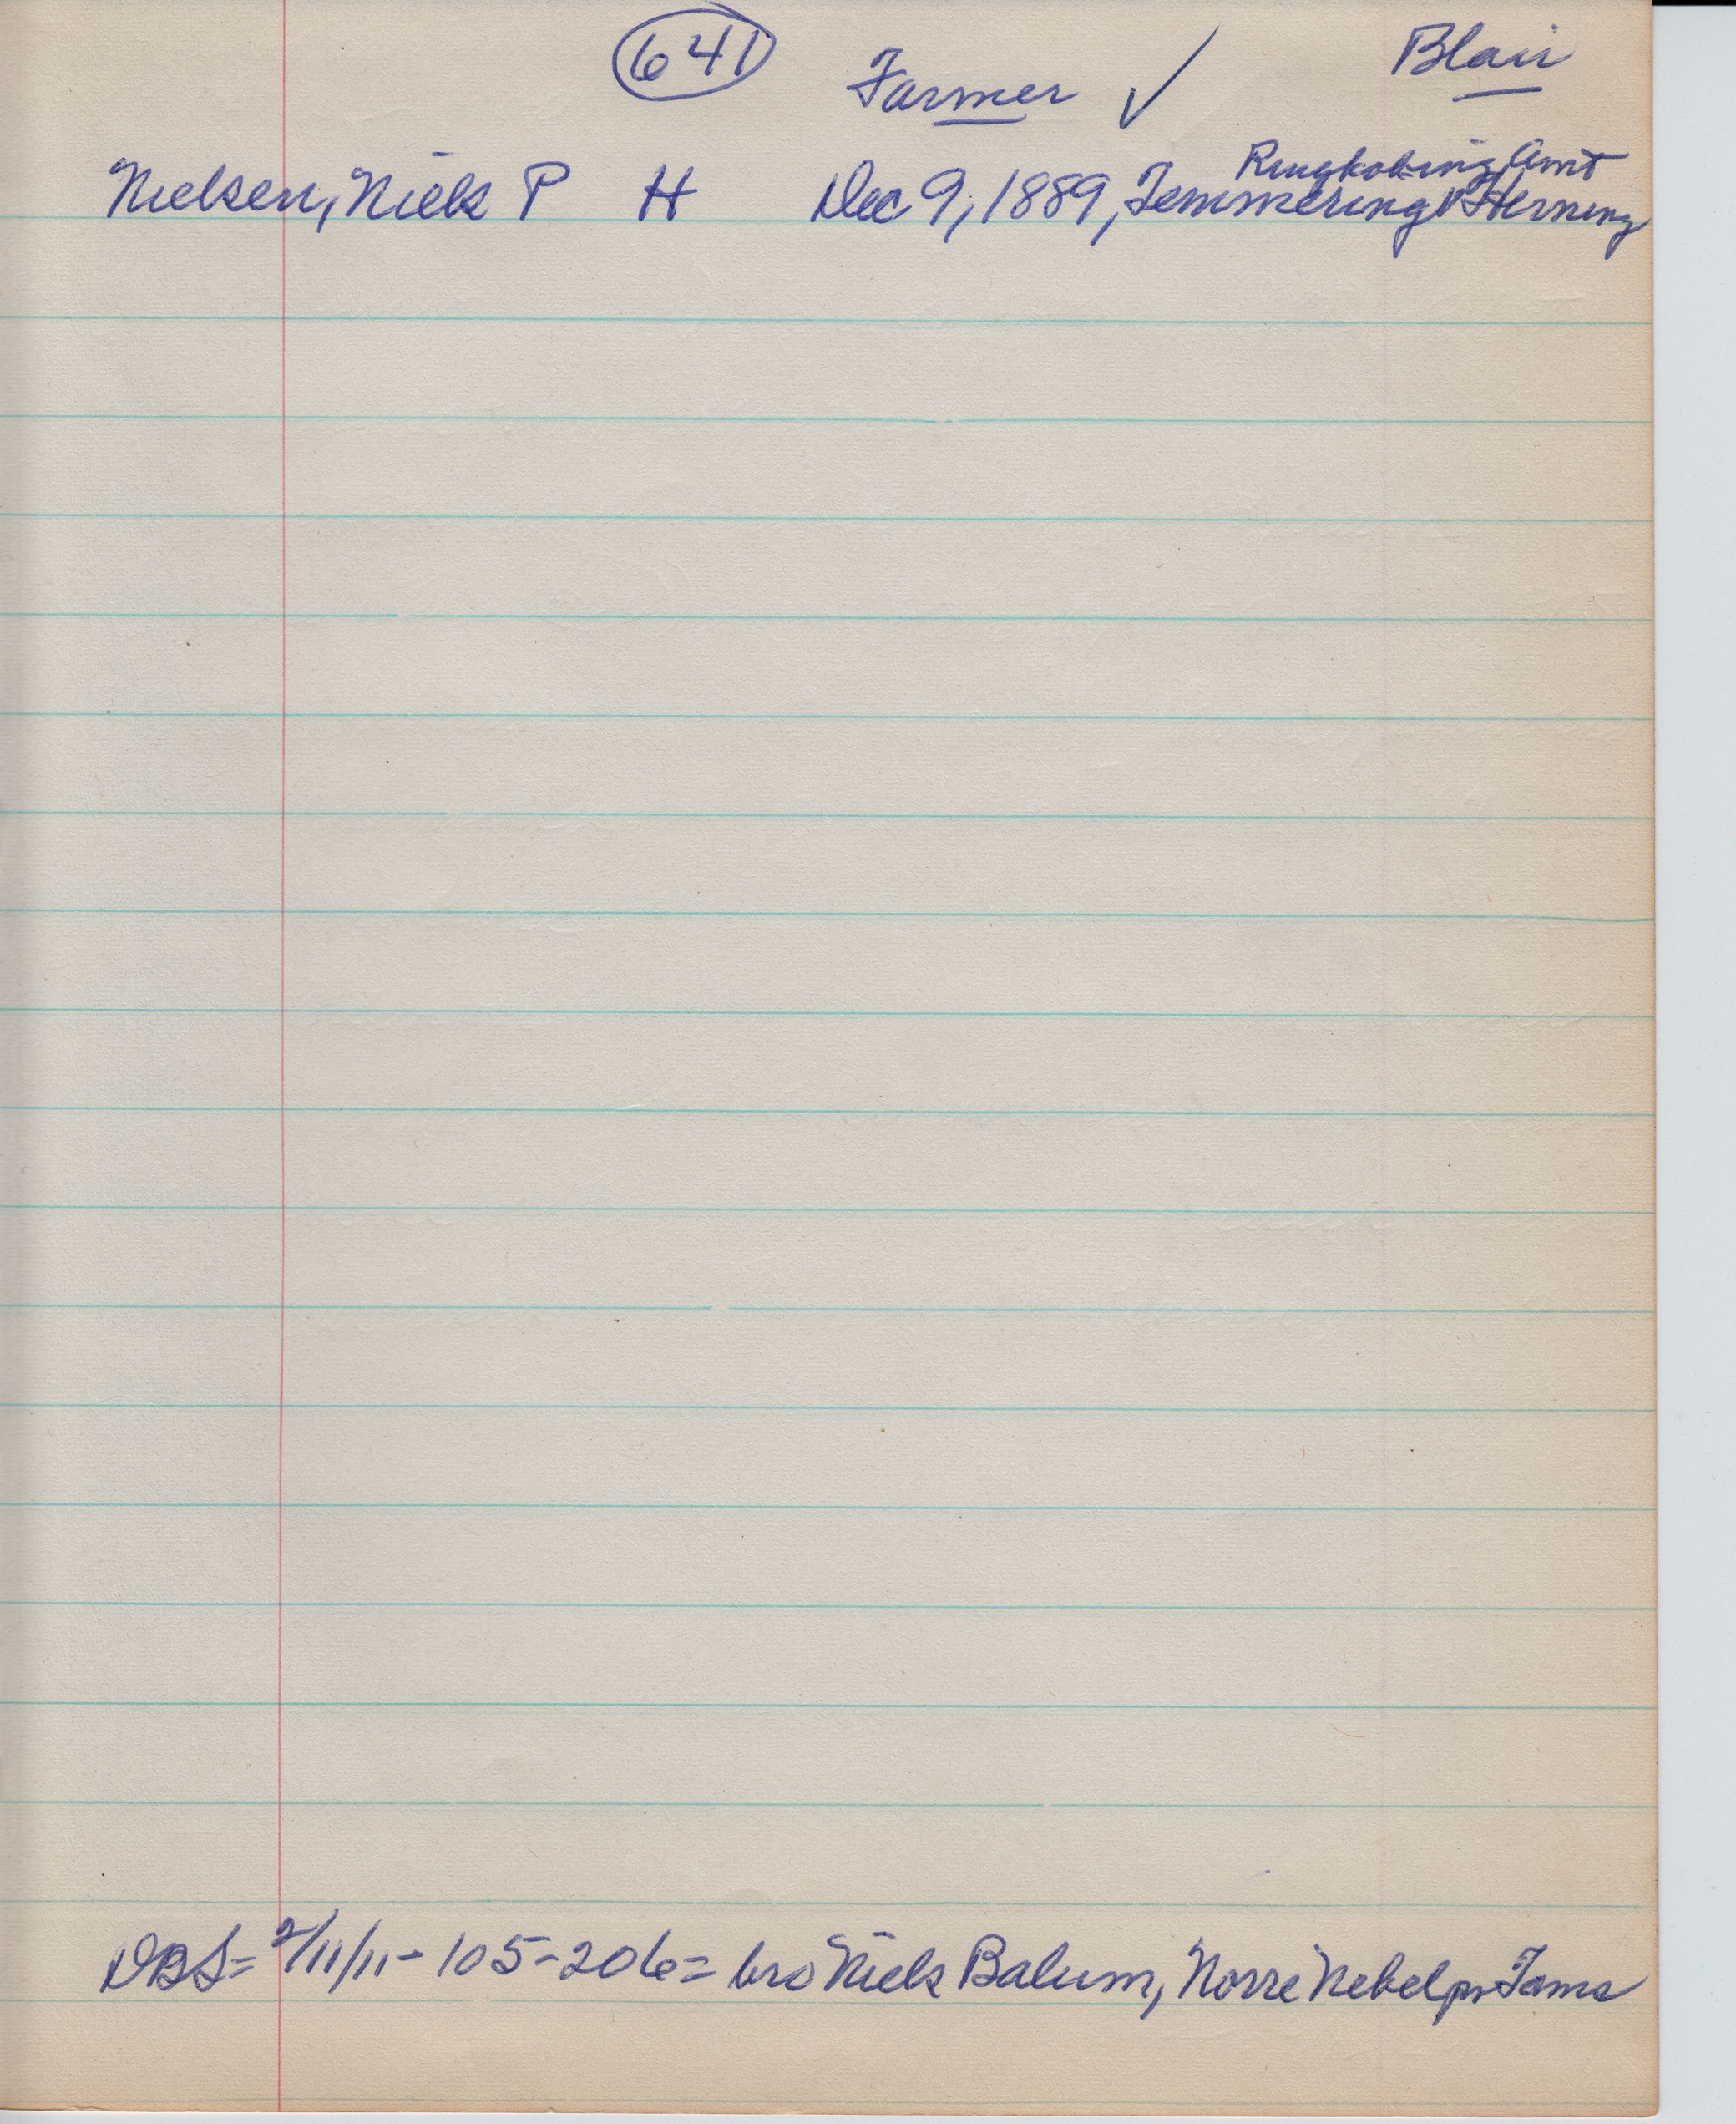 641 Farmer ✓ Blair
Ringkobing Amt
Nielsen, Niels P H Dec 9, 1889, Timmering v Herning
DBS= 2/11/11-105-206= bro Niels Balum, Norre Nebel pr Tams